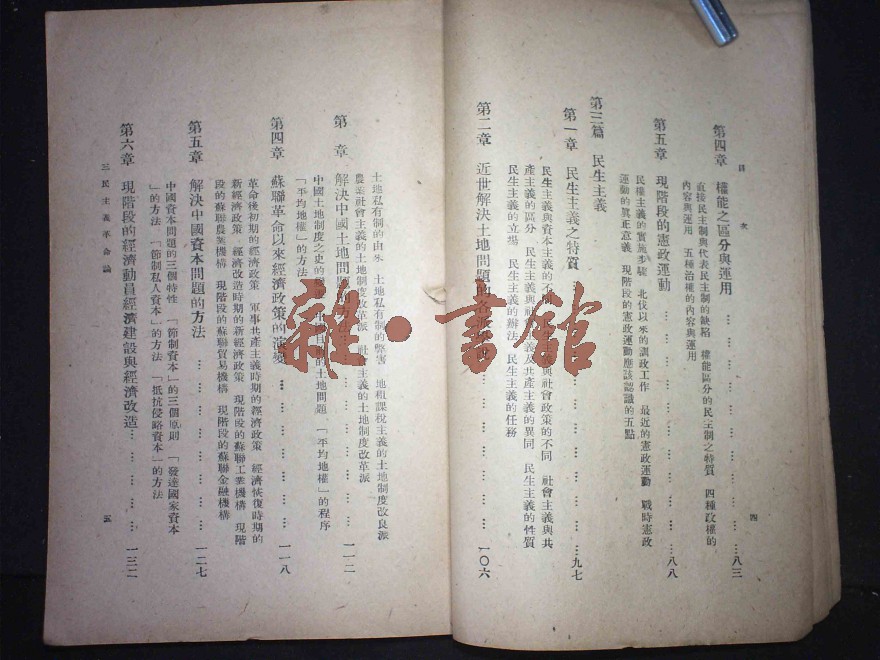 目次
第四章 權能之區分與運用…八三
直接民主制與代表民主制的缺陷 權能區分的民主制之特質 四種政權的
內容與運用 五種治權的內容與運用
第五章 現階段的憲政運動…八八
民權主義的實施步驟 北伐以來的訓政工作 最近的憲政運動 戰時憲政
運動的眞正意義 現階段的憲政運動應該認識的五點
第三篇 民生主義
第一章 民生主義之特質…九七
民生主義與資本主義的不同 與社會政策的不同 社會主義與共
產主義的區分 民生主義與社 主義及共產主義的異同 民生主義的性質
民生主義的立場 民生主義的辦法 民生主義的任務
第二章 近世解決土地問題的各派…一〇六
四
土地私有制的由來 土地私有制的弊害 地租課稅主義的土地制度改良派
農業社會主義的土地制度改革派 社 主義的土地制度改革派
第 章 解決中國土地問題的…一一二
中國土地制度之史的 中國目前的土地問題 「平均地權」的程序
「平均地權」的方法
第四章 蘇聯革命以來經濟政策的演變…一一八
革命後初期的經濟政策 軍事共產主義時期的經濟政策 經濟恢復時期的
新經濟政策 經濟改造時期的新經濟政策 現階段的蘇聯工業機構 現階
段的蘇聯農業機構 現階段的蘇聯貿易機構 現階段的蘇聯金融機構
第五章 解決中國資本問題的方法…一二七
中國資本問題的三個特性 「節制資本」的三個原則 「發達國家資本
」的方法 「節制私人資本」的方法 「抵抗侵略資本」的方法
第六章 現階段的經濟動員經濟建設與經濟改造…一三二
三民主義革命論
五
雜·書館